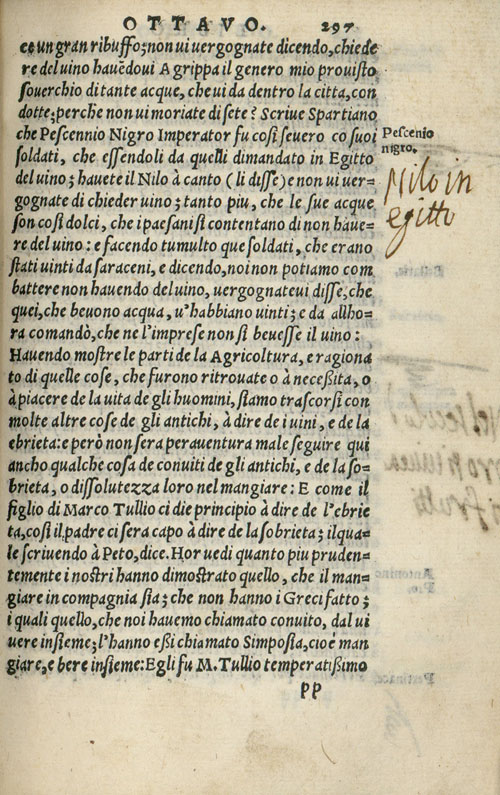 OTTAVO. 297
ce un gran ribuffo; non ui uergognate dicendo, chiede
re del uino hauēdoui Agrippa il genero mio prouisto
souerchio di tante acque, che ui da dentro la citta, con
dotte; perche non ui moriate di sete? Scriue Spartiano
che Pescennio Nigro Imperator fu cosi seuero co suoi
soldati, che essendoli da quelli dimandato in Egitto
del uino; hauete il Nilo à canto (li disse) e non ui uer=
gognate di chieder uino; tanto piu, che le sue acque
son cosi dolci, che i paesani si contentano di non haue=
re del uino: e facendo tumulto que soldati, che erano
stati uinti da saraceni, e dicendo, noi non potiamo com
battere non hauendo del uino, uergognateui disse, che
quei, che beuono acqua, u'habbiano uinti; e da allho=
ra comandò, che ne l'imprese non si beuesse il uino:
Hauendo mostre le parti de la Agricoltura, e ragiona
to di quelle cose, che furono ritrouate o à neceßita, o
à piacere de la uita de gli huomini, siamo trascorsi con
molte altre cose de gli antichi, à dire de i uini, e de la
ebrieta: e però non sera perauentura male seguire qui
ancho qualche cosa de conuiti de gli antichi, e de la so=
brieta, o dissolutezza loro nel mangiare: E come il
figlio di Marco Tullio ci die principio à dire de l'ebrie
ta, cosi il padre ci sera capo à dire de la sobrieta; il qua=
le scriuendo à Peto, dice. Hor uedi quanto piu pruden=
temente i nostri hanno dimostrato quello, che il man=
giare in compagnia sia; che non hanno i Greci fatto;
i quali quello, che noi hauemo chiamato conuito, dal ui
uere insieme; l'hanno eßi chiamato Simposia, cioé man
giare, e bere insieme: Egli fu M. Tullio temperatißimo
PP
Pescenio
nigro.
Nilo in
egitto